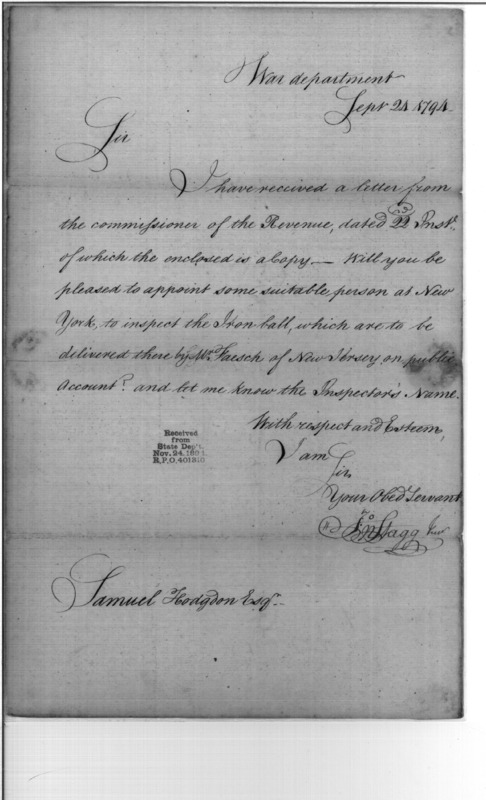 War department
Sept 24 1794
Sir
I have received a letter from
the commissioner of the Revenue, dated 22 Inst.
of which the enclosed is a Copy — Will you be
pleased to appoint some suitable person at New
York, to inspect the Iron ball, which are to be
delivered there by Mr. Faesch of New Jersey, on public
Account? and let me know the Inspector's Name.
With respect and Esteem,
I am
Sir,
Your Obed. Servant
Jno Stagg Junr
Received
from
State Dep't.
R.P.O. 401310
Samuel Hodgdon Esqr.